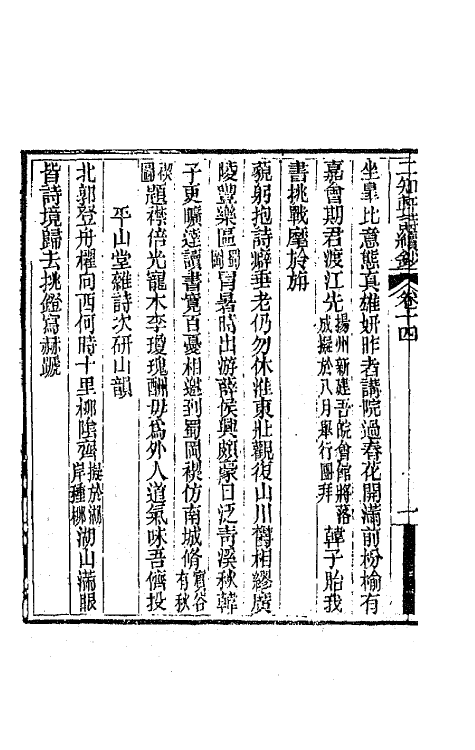 二知軒詩續鈔 卷十四 一
坐皐比意態真雄妍昨者講院過春花開滿前枌榆有
嘉會期君渡江先揚州新建吾皖會館將落成擬於八月舉行團拜韓子貽我
書挑戰麾於旃
藐躬抱詩癖垂老仍勿休淮東壯觀復山川鬱相繆廣
陵豐樂區蜀岡冒暑時出游薛侯興頗豪日泛青溪秋韓
子更曠達讀書寬百憂相邀到蜀岡稧仿南城脩賓谷有秋
稧圖題襟倍光寵木李瓊瑰酬毋為外人道氣味吾儕投
平山堂雜詩次研山韻
北郭登舟櫂向西何時十里柳陰齊擬於湖岸種柳湖山滿眼
皆詩境歸去挑鐙寫赫蹏